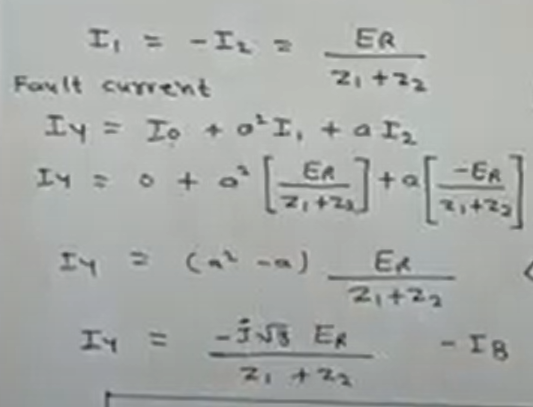 I₁ = -I₂ = ER / Z₁+Z₂
Fault current
IY = I₀ + a²I₁ + a I₂
IY = 0 + a² [ER / Z₁+Z₂] + a [-ER / Z₁+Z₂]
IY = (a² - a) ER / Z₁+Z₂
IY = -j√3 ER / Z₁ + Z₂ - IB